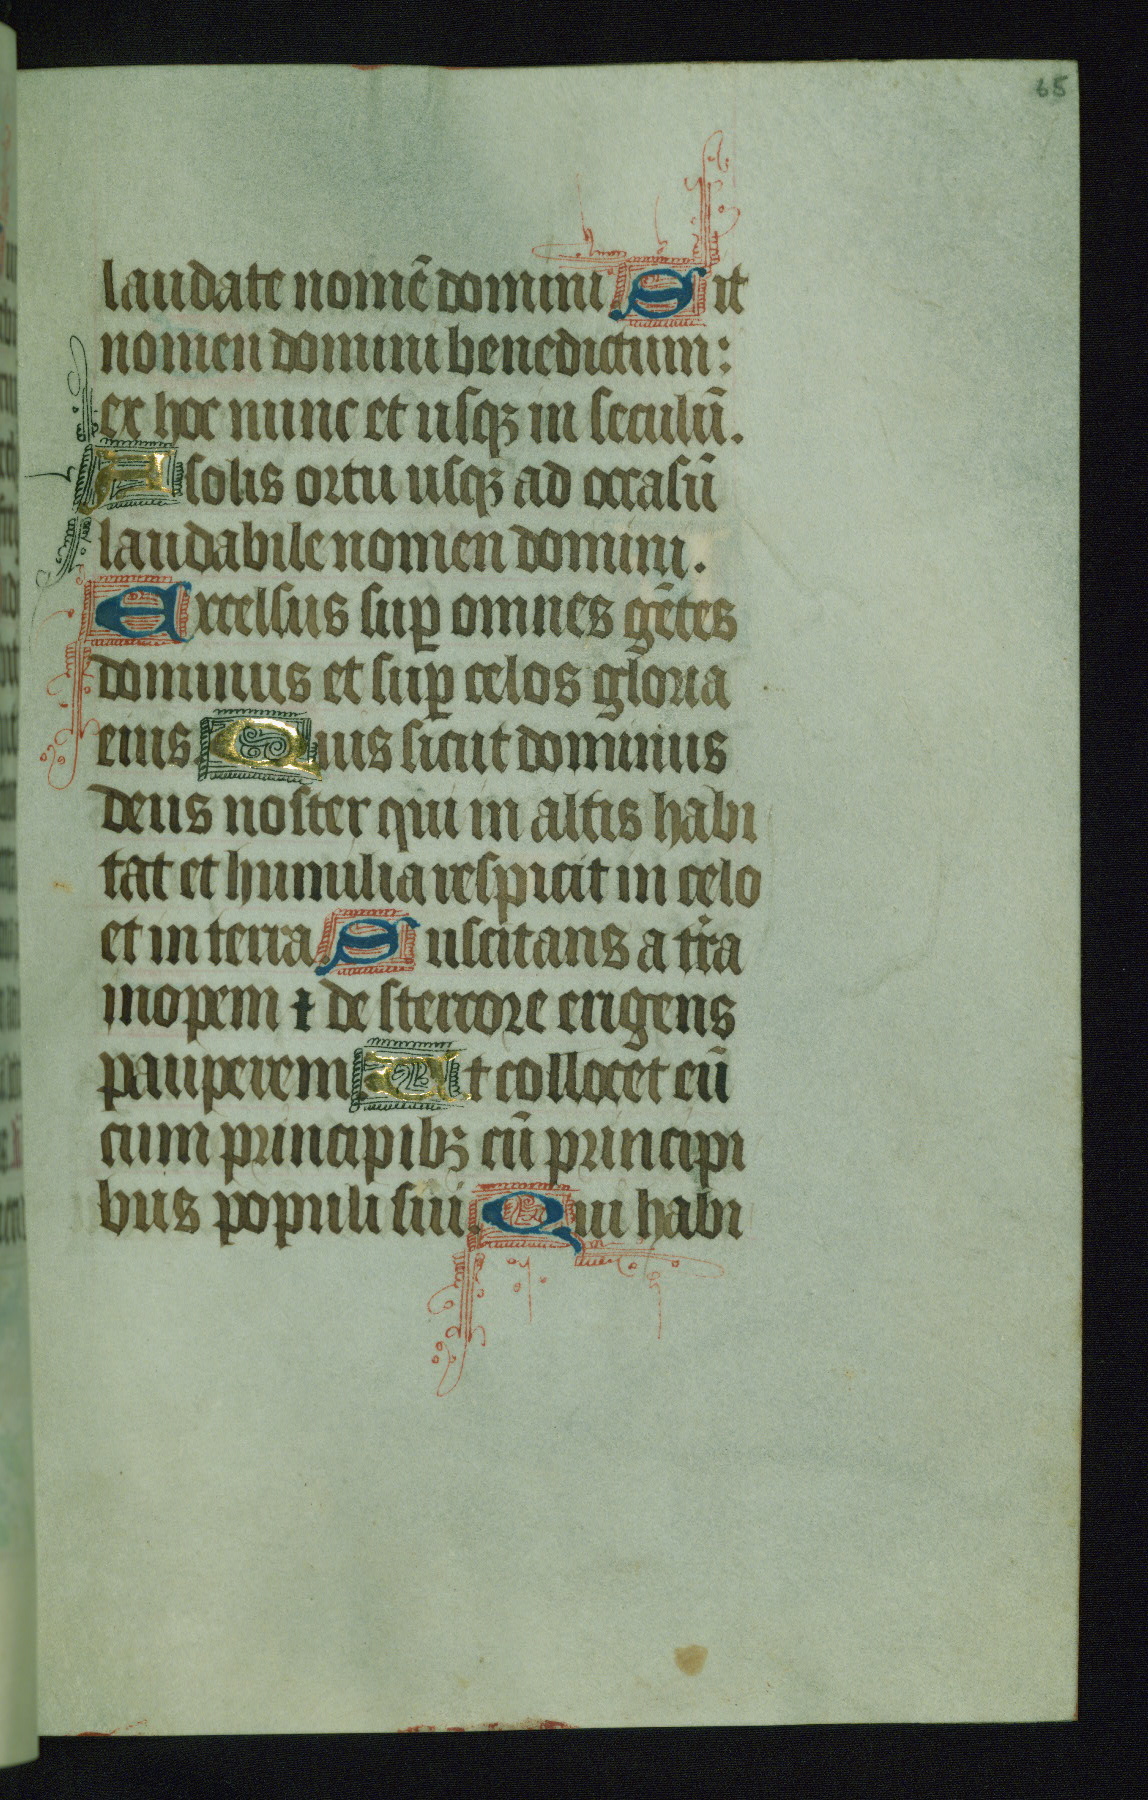 65
laudate nomē domini Sit
nomen domini benedictum:
ex hoc nunc et usqꝫ in seculū.
A solis ortu usqꝫ ad occasū
laudabile nomen domini.
Excelsus suꝑ omnes gētes
dominus et suꝑ celos gloria
eius. Quis sicut dominus
deus noster qui in altis habi
tat et humilia respicit in celo
et in terra. Suscitans a tr̄a
inopem ⁊ de stercore erigens
pauperem. Ut collocet eū
cum principibꝫ cū principi
bus populi sui. Qui habi